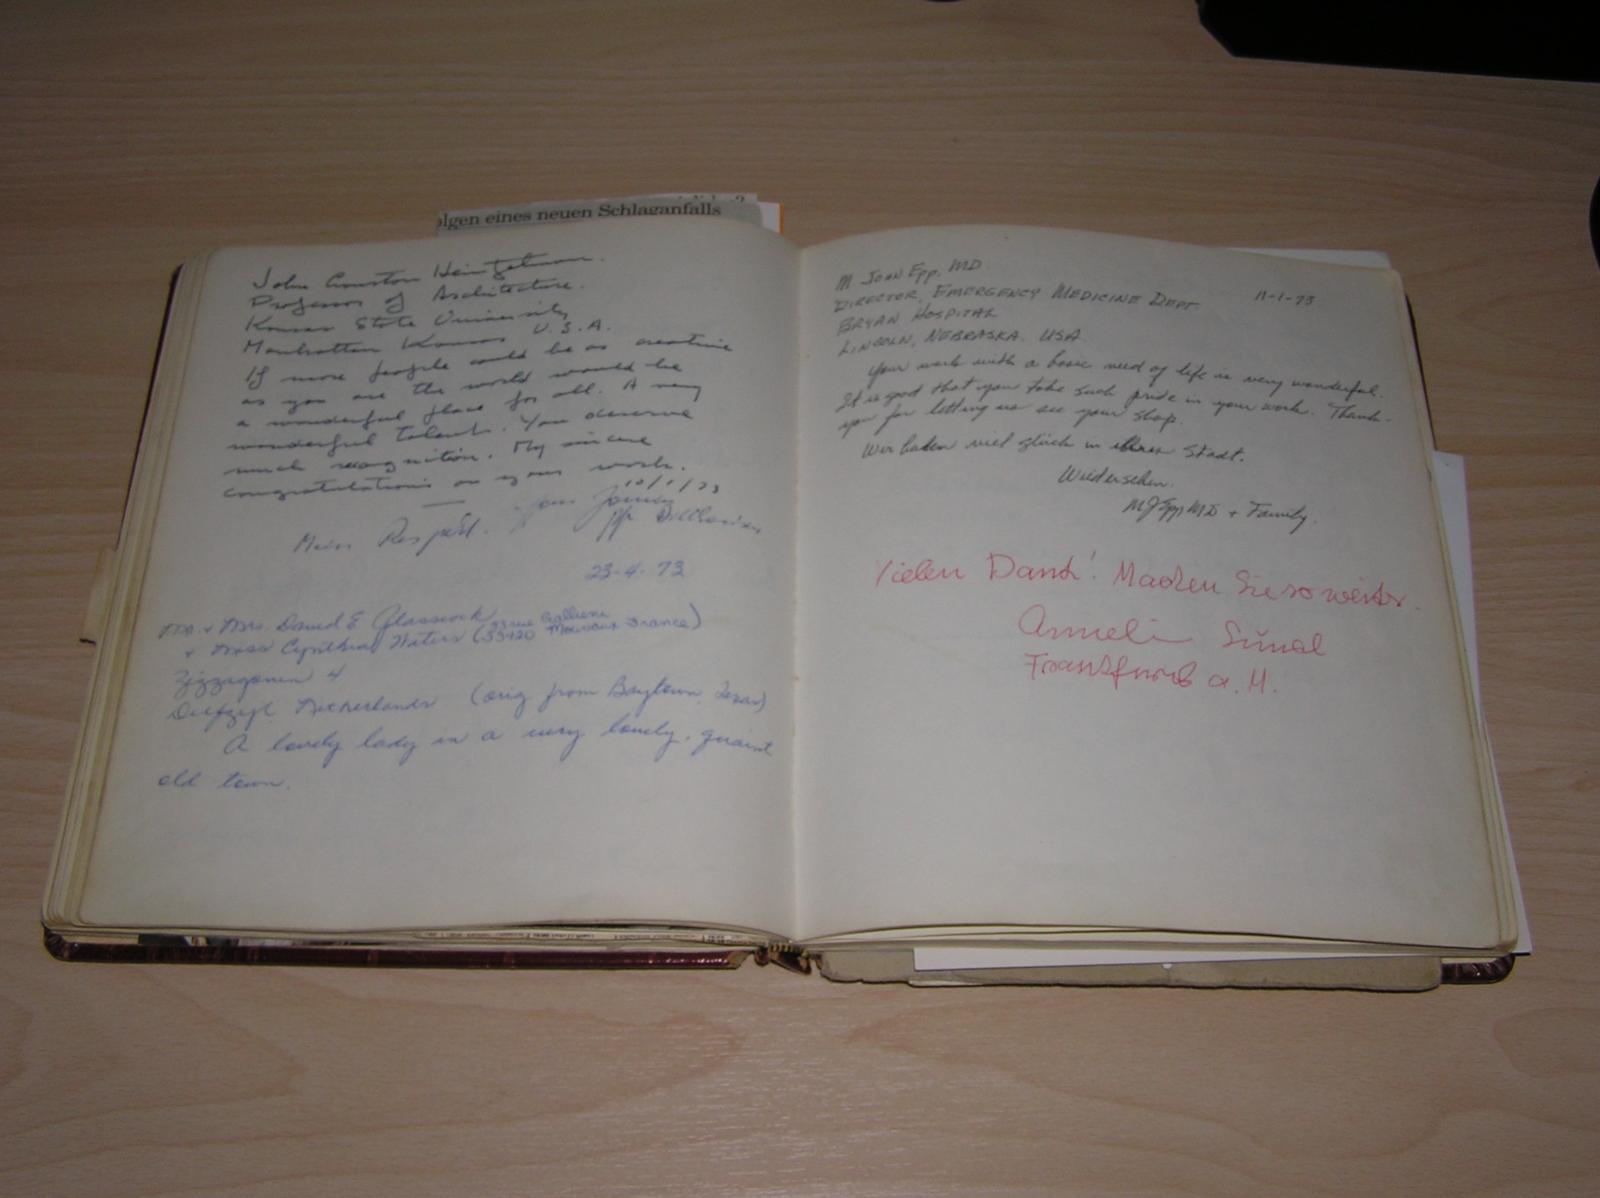 olgen eines neuen Schlaganfalls
John Heintzelman.
Professor of Architecture.
Kansas State University
Manhattan Kansas U.S.A.
If more people could be as creative
as you are the world would be
a wonderful place for all. A very
wonderful talent. You deserve
much recognition. My sincere
congratulations on your work.
10/1/73
Mein Respekt.
23-4-73
Mr. + Mrs. David E Glasscock
+ Miss Cynthia Waters (33 rue Gallieni
59420 Mouvaux France)
4
Delfzyl Netherlands (orig from Baytown, Texas)
A lovely lady in a very lovely, quaint
old town.
M JOHN EPP, MD
11-1-73
DIRECTOR, EMERGENCY MEDICINE DEPT.
BRYAN HOSPITAL
LINCOLN, NEBRASKA. USA.
Your work with a basic need of life is very wonderful.
It is good that you take such pride in your work. Thank-
you for letting us see your shop.
Wir haben viel glück in Stadt.
Wiedersehen.
MJEpp MD + Family.
Vielen Dank! Machen Sie so weiter.
Anneli
Frankfurt a. M.